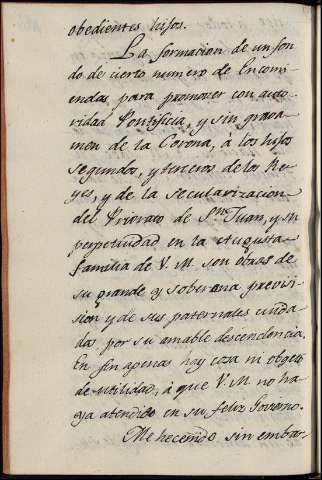 obedientes hijos.
La formacion de un fon
do de cierto numero de Encomi
endas para promover con auto
ridad Pontificia, y sin grava
men de la Corona, à los hijos
segundos, y terceros de los Re
yes, y de la secularizacion
del Priorato de Sn Juan, y su
perpetuidad en la Augusta
familia de V. M. son obras de
su grande y soberana previsi
sion y de sus paternales cuida
dos por su amable descendencia.
En fin apenas hay coza ni objeto
de utilidad, à que V. M. no ha
ya atendido en su feliz Govierno.
Me he senido sin embar-